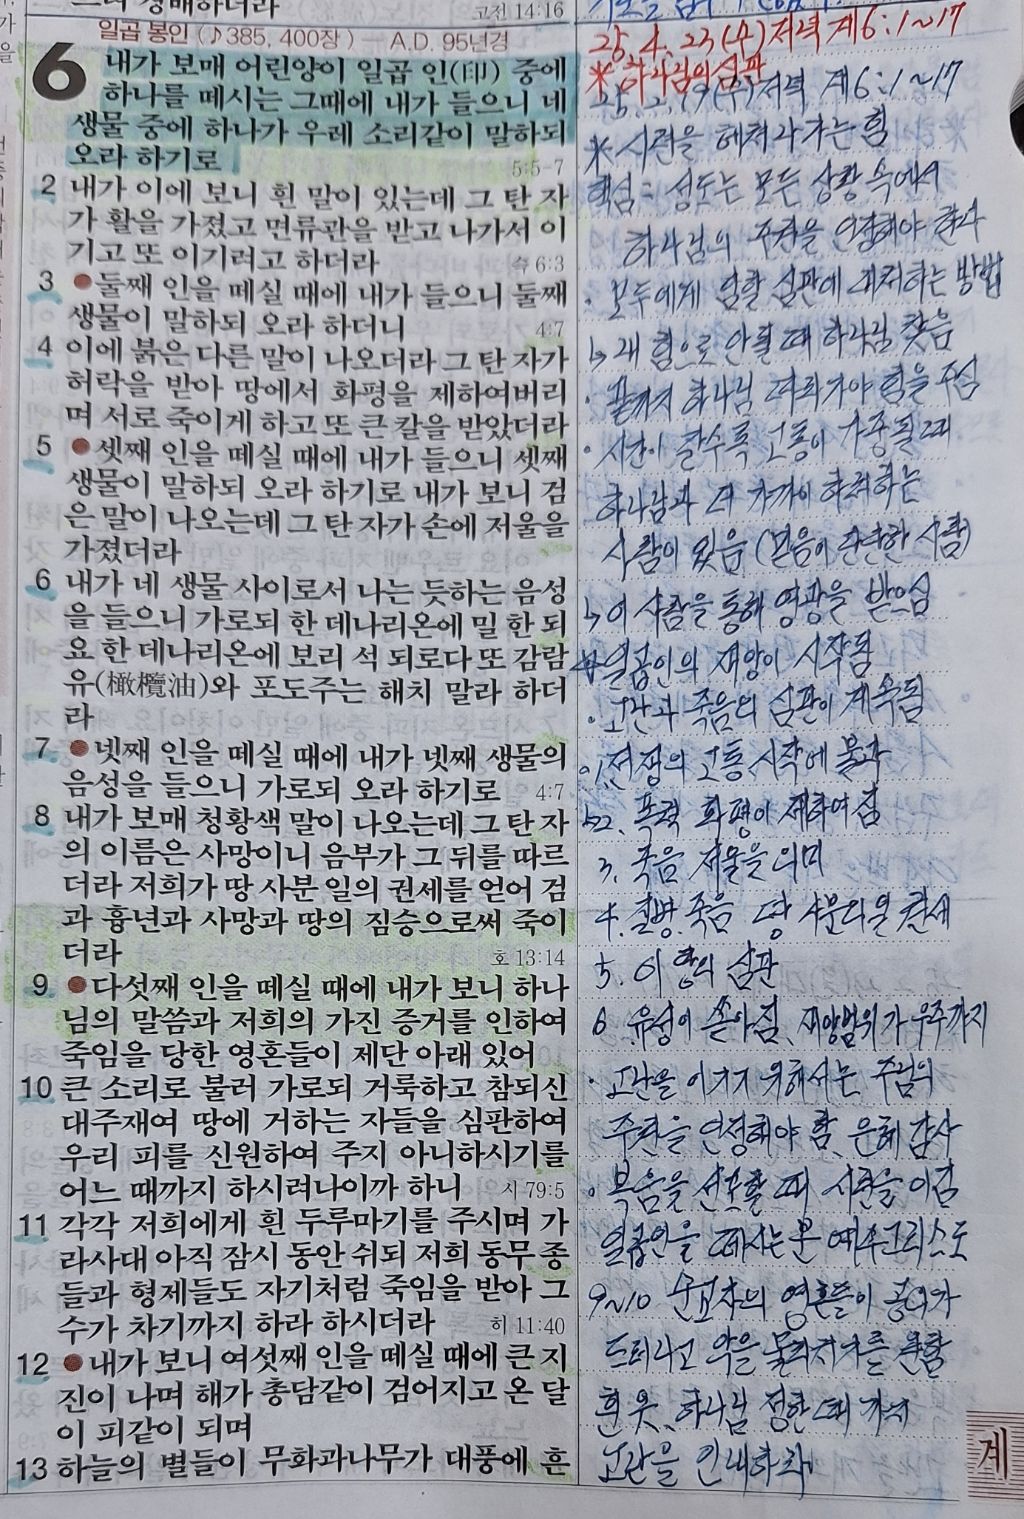 므려 경배하더라
고전 14:16
일곱 봉인 (♪385, 400장) — A.D. 95년경
6 내가 보매 어린양이 일곱 인(印) 중에
하나를 떼시는 그때에 내가 들으니 네
생물 중에 하나가 우레 소리같이 말하되
오라 하기로 5:5-7
2 내가 이에 보니 흰 말이 있는데 그 탄 자
가 활을 가졌고 면류관을 받고 나가서 이
기고 또 이기려고 하더라 슥 6:3
3 ●둘째 인을 떼실 때에 내가 들으니 둘째
생물이 말하되 오라 하더니 4:7
4 이에 붉은 다른 말이 나오더라 그 탄 자가
허락을 받아 땅에서 화평을 제하여버리
며 서로 죽이게 하고 또 큰 칼을 받았더라
5 ●셋째 인을 떼실 때에 내가 들으니 셋째
생물이 말하되 오라 하기로 내가 보니 검
은 말이 나오는데 그 탄 자가 손에 저울을
가졌더라
6 내가 네 생물 사이로서 나는 듯하는 음성
을 들으니 가로되 한 데나리온에 밀 한 되
요 한 데나리온에 보리 석 되로다 또 감람
유(橄欖油)와 포도주는 해치 말라 하더
라
7 ●넷째 인을 떼실 때에 내가 넷째 생물의
음성을 들으니 가로되 오라 하기로 4:7
8 내가 보매 청황색 말이 나오는데 그 탄 자
의 이름은 사망이니 음부가 그 뒤를 따르
더라 저희가 땅 사분 일의 권세를 얻어 검
과 흉년과 사망과 땅의 짐승으로써 죽이
더라 호 13:14
9 ●다섯째 인을 떼실 때에 내가 보니 하나
님의 말씀과 저희의 가진 증거를 인하여
죽임을 당한 영혼들이 제단 아래 있어
10 큰 소리로 불러 가로되 거룩하고 참되신
대주재여 땅에 거하는 자들을 심판하여
우리 피를 신원하여 주지 아니하시기를
어느 때까지 하시려나이까 하니 시 79:5
11 각각 저희에게 흰 두루마기를 주시며 가
라사대 아직 잠시 동안 쉬되 저희 동무 종
들과 형제들도 자기처럼 죽임을 받아 그
수가 차기까지 하라 하시더라 히 11:40
12 ●내가 보니 여섯째 인을 떼실 때에 큰 지
진이 나며 해가 총담같이 검어지고 온 달
이 피같이 되며
13 하늘의 별들이 무화과나무가 대풍에 흔
25. 4. 23 (수) 저녁 계6:1~17
* 하나님의 심판
25. 2. 19 (수) 저녁 계6:1~17
* 시련을 헤쳐나가는 힘
핵심 = 성도는 모든 상황 속에서
하나님의 주권을 인정해야 한다
· 모두에게 임할 심판에 대처하는 방법
↳ 내 힘으로 안될 때 하나님 찾음
· 끝까지 하나님 따라가야 힘을 주심
· 시간이 갈수록 고통이 가중될 때
하나님과 더 가까이 하려하는
사람이 있음 (믿음이 단단한 사람)
↳ 이 사람을 통해 영광을 받으심
* 일곱인의 재앙이 시작됨
· 고난과 죽음의 심판이 계속됨
1. 전쟁의 고통, 시작에 불과
2. 폭력 화평이 제하여짐
3. 죽음 저울을 의미
4. 질병, 죽음 땅 사분의 일 권세
5. 이 땅의 심판
6. 유성이 쏟아짐, 재앙범위가 우주까지
· 고난을 이기기 위해서는 주님의
주권을 인정해야 함, 은혜 감사
· 복음을 선포할 때 시련을 이김
일곱인을 떼시는 분 예수그리스도
9~10 순교자의 영혼들이 공의가
드러나고 악을 물리치기를 원함
흰 옷, 하나님 정한 때까지
고난을 인내하라
계